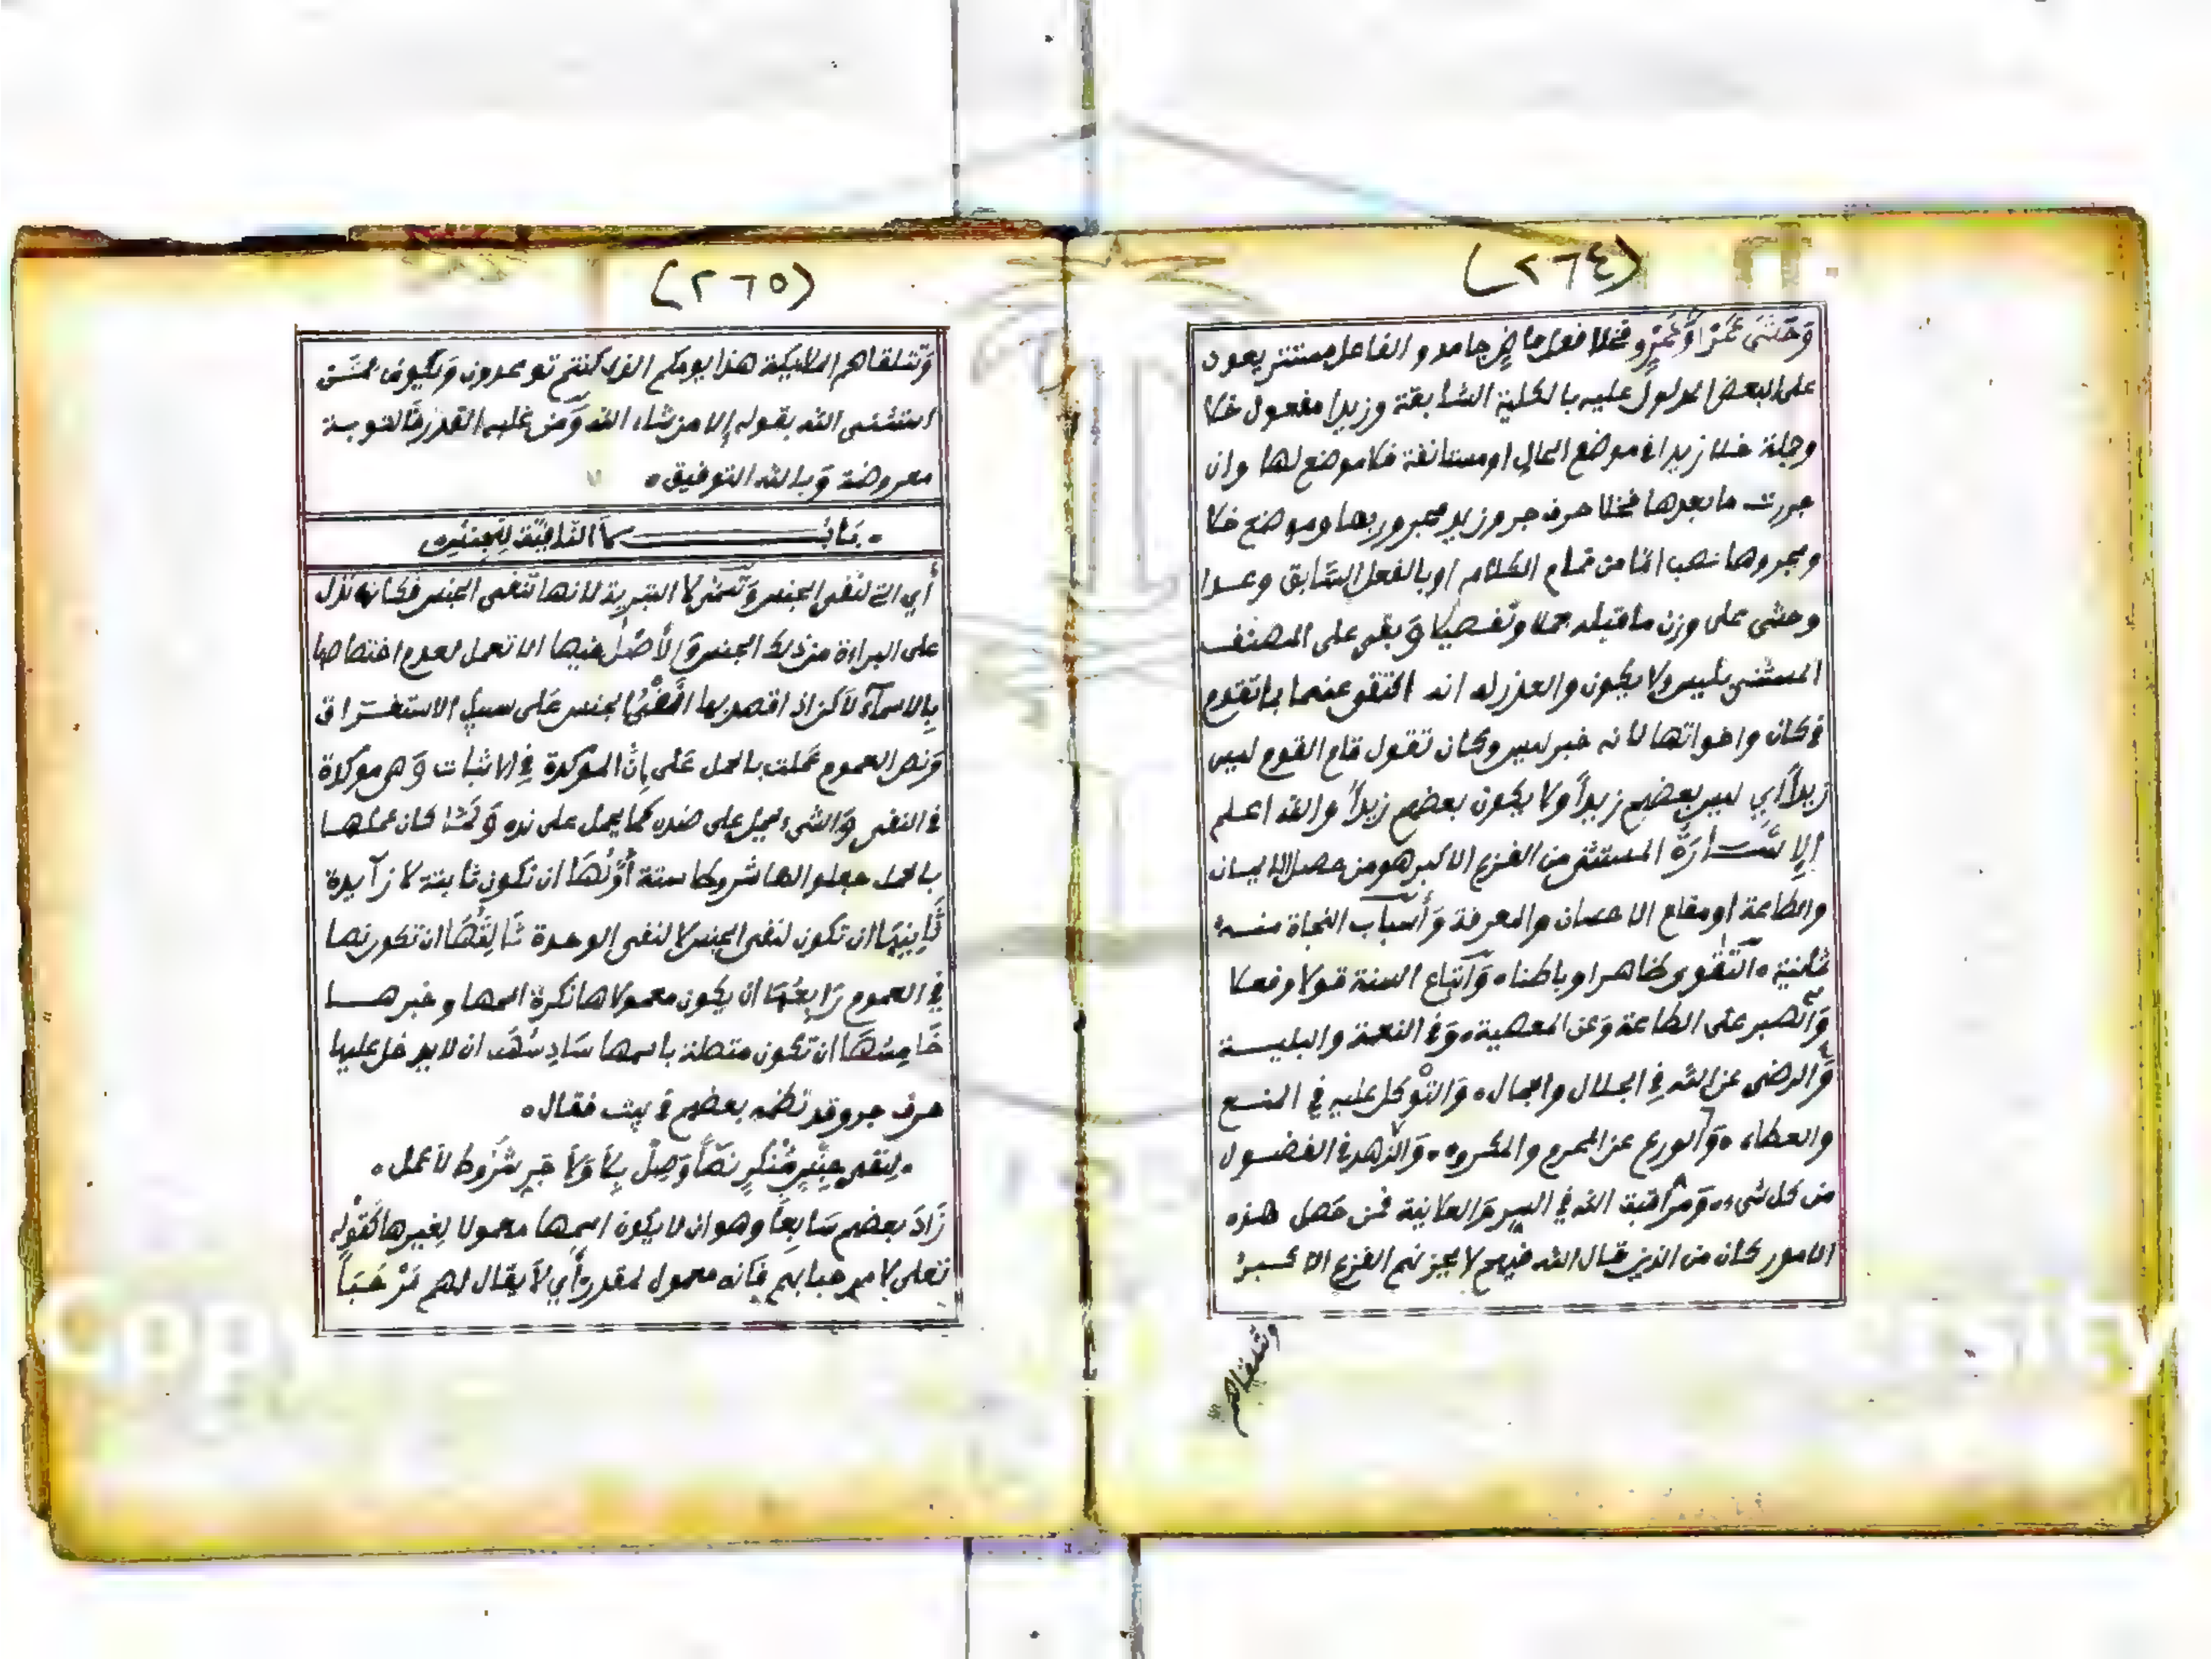 (٢٦٤)
وَحَشَىَ عَمْرًا وَعَمْرٍو فخلا فعل ماضٍ جامد والفاعل مستتر يعود
على البعض المدلول عليه بالكلية السّابقة وزيدا مفعول خلا
وجملة خلا زيدا في موضع الحال او مستانفة فلا موضع لها وان
جررت ما بعدها فخلا حرف جر وزيد مجرور بها وموضع خلا
ومجروها نصب امّا من تمام الكلام او بالفعل السّابق وعدا
وحشى على وزن ما قبله عملا وتفصيلا وَبقى على المصنف
المستثنى بليس ولا يكون والعذر له انه اكتفى عنهما بما تقدم
في كان واخواتها لانه خبر ليس وكان تقول قام القوم ليس
زيداً أي ليس بعضهم زيداً ولا يكون بعضهم زيداً والله اعلم
الاِشَــارَةُ المستثنى من الفزع الاكبر هو من حصل الايمان
والطاعة او مقام الاحسان والمعرفة وَأسباب النجاة منه
ثمانية ٥ التّقوى ظاهرا وباطنا ٥ وَاتباع السنة قولا وفعلا
وَالصبر على الطاعة وَعن المعصية ٥ وَفي النعمة والبلية
وَالرضى عن الله في الجلال والجمال ٥ وَالتّوْكل عليه في المنع
والعطاء ٥ وَالورع عن المحرم والمكروه ٥ وَالزّهد في الفضول
من كل شيء ٥ وَمراقبة الله في السر وَالعلانية فمن حَصل هذه
الامور كان من الذين قال الله فيهم لا يحزنهم الفزع الاكبرُ
وتتلقاهم
(٢٦٥)
وَتتلقاهم الملايكة هذا يومكم الذي كنتم توعدون وَيكون ممّن
استثنى الله بقوله إلا من شاء الله وَمن غلبه القدر فَالتوبة
معروضة وَبالله التوفيق ٥
٥ بَابُ لاَ النّافِيَّة لِلْجِنْسِ
أي التي لنفي الجنس وَتسمّى لا التبرية لانها تَنفي الجنس فكانه تدل
على البراءة من ذلك الجنس وَالأصْل فيها الا تعمل لعدم اختصاصها
بِالاسمآء لاَكن اذا قصد بها نفي الجنس عَلى سبيل الاستغراق
وَنص العموم عَملت بالحمل عَلى إنّ المؤكدة في الاثبات وَهي موكدة
في النفي وَالشيء يحمل على ضده كما يحمل على نده وَلَمّا كان عملها
بالحمل جعلوا لها شروطا ستة أَوّلُهَا ان تكون ثابتة لا زآيدة
ثَانِيهَا ان تكون لنفي الجنس لا لنفي الوحدة ثَالِثُهَا ان تكون نصا
في العموم رَابِعُهَا ان يكون معمولاها نكرة اسمها وخبرها
خَامِسُهَا ان تكون متصلة باسمها سَادِسُهَا ان لا يدخل عليها
حرف جر وقد نظمه بعضهم في بيت فقال ٥
٥ لِنفي جِنْسٍ مُنْكَرٍ نصّاً وَصِلْ بِلاَ وَلاَ جَرٍ شُرُوط لاَ عمل ٥
زَادَ بعضهم سَابِعاً وهو ان لا يكون اسمها معمولا لِغيرها كَقَوْلِهِ
تعلى لا مرحبا بهم فإنه معمول لمقدر أي لاَ يقال لهم مَرْحَبَاً